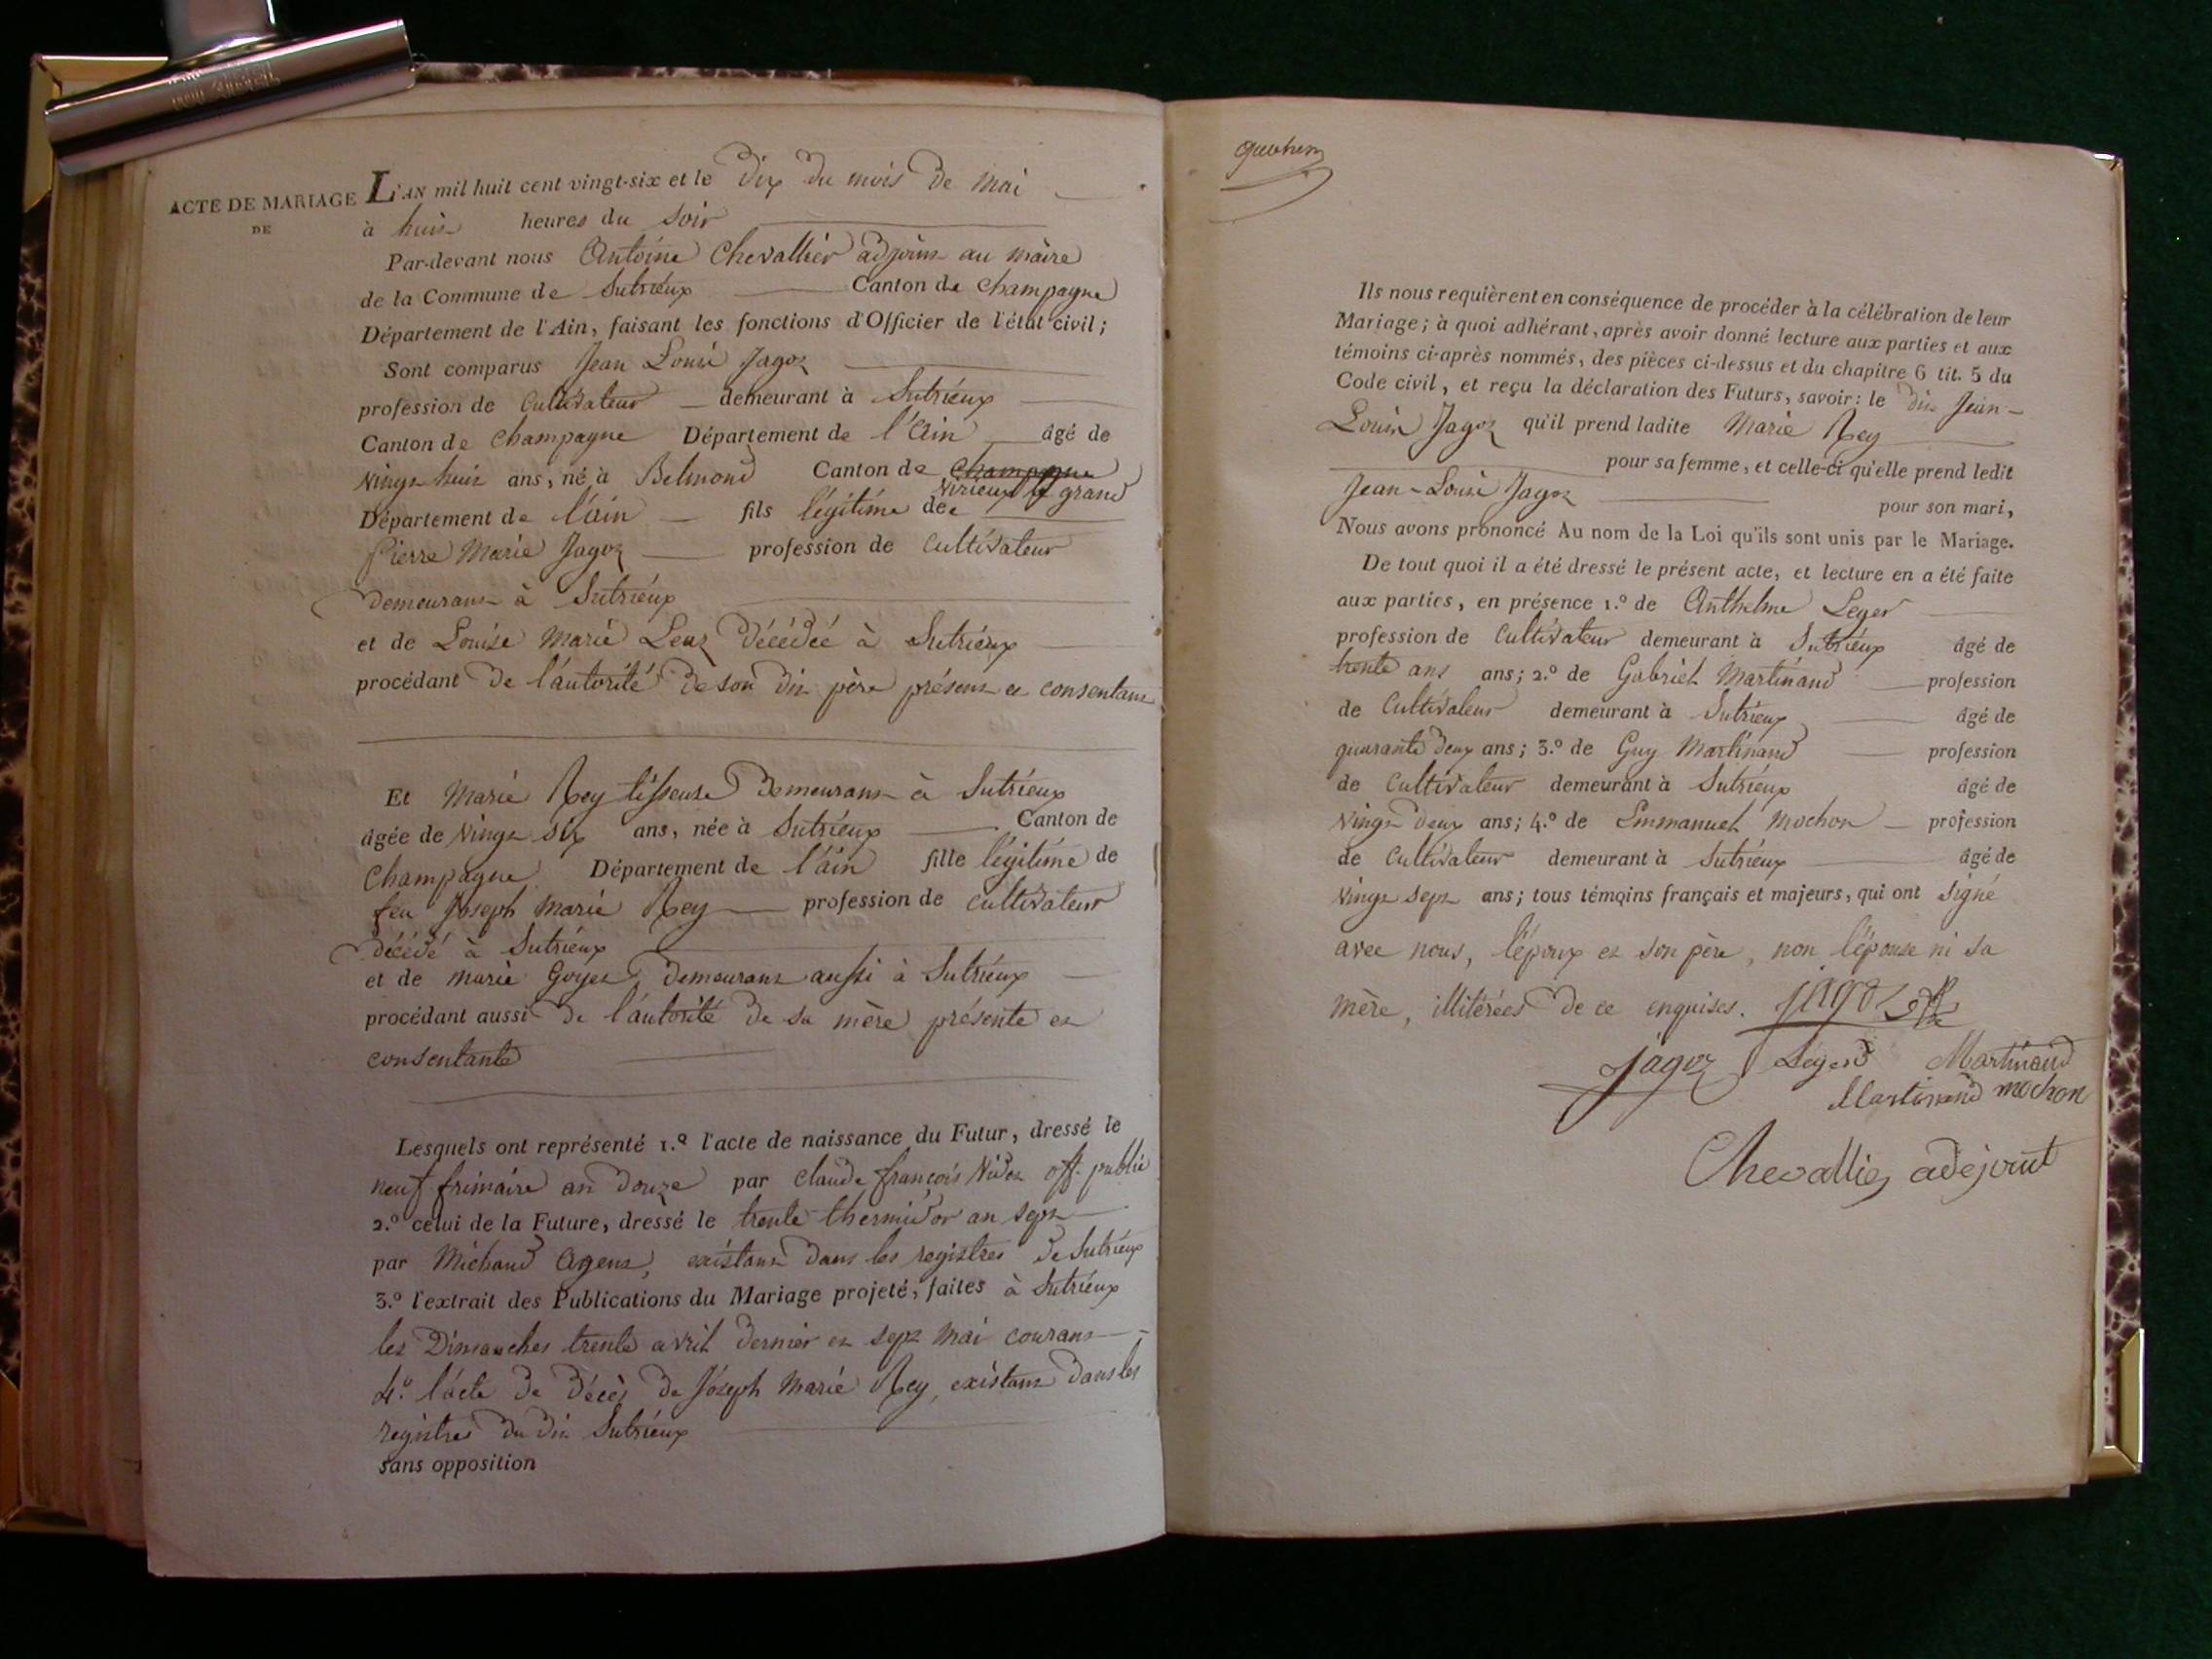 ACTE DE MARIAGE
DE
L'AN mil huit cent vingt-six et le dix du mois de mai
à huit heures du soir
Par-devant nous Antoine Chevallier adjoint au maire
de la Commune de Sutrieux Canton de Champagne
Département de l'Ain, faisant les fonctions d'Officier de l'état civil;
Sont comparus Jean Louis Jagoz
profession de Cultivateur demeurant à Sutrieux
Canton de Champagne Département de l'Ain âgé de
vingt huit ans, né à Belmond Canton de Champagne
virieux le grand
Département de l'ain fils légitime de
Pierre Marie Jagoz profession de Cultivateur
demeurant à Sutrieux
et de Louise Marie décédée à Sutrieux
procédant de l'autorité de son dit père présent et consentant
Et Marie Rey tisseuse demeurant à Sutrieux
âgée de vingt six ans, née à Sutrieux Canton de
Champagne Département de l'ain fille légitime de
feu Joseph Marie Rey profession de cultivateur
décédé à Sutrieux
et de marie Goyet demeurant aussi à Sutrieux
procédant aussi de l'autorité de sa mère présente et
consentante
Lesquels ont représenté 1.º l'acte de naissance du Futur, dressé le
neuf frimaire an douze par Claude françois off. public
2.º celui de la Future, dressé le trente thermidor an sept
par Michaud Agent, existant dans les registres de Sutrieux
3.º l'extrait des Publications du Mariage projeté, faites à Sutrieux
les Dimanches trente avril dernier et sept mai courant
4.º l'acte de décès de Joseph Marie Rey, existant dans les
registres du dit Sutrieux
sans opposition
Ils nous requièrent en conséquence de procéder à la célébration de leur
Mariage; à quoi adhérant, après avoir donné lecture aux parties et aux
témoins ci-après nommés, des pièces ci-dessus et du chapitre 6 tit. 5 du
Code civil, et reçu la déclaration des Futurs, savoir: le dit Jean-
Louis Jagoz qu'il prend ladite Marie Rey
pour sa femme, et celle-ci qu'elle prend ledit
Jean-Louis Jagoz pour son mari,
Nous avons prononcé Au nom de la Loi qu'ils sont unis par le Mariage.
De tout quoi il a été dressé le présent acte, et lecture en a été faite
aux parties, en présence 1.º de Anthelme Leger
profession de Cultivateur demeurant à Sutrieux âgé de
trente ans ans; 2.º de Gabriel Martinand profession
de Cultivateur demeurant à Sutrieux âgé de
quarante deux ans; 3.º de Guy Martinand profession
de Cultivateur demeurant à Sutrieux âgé de
vingt deux ans; 4.º de Emmanuel Mochon profession
de Cultivateur demeurant à Sutrieux âgé de
vingt sept ans; tous témoins français et majeurs, qui ont signé
avec nous, l'époux et son père, non l'épouse ni sa
mère, illitérées de ce enquises. jagoz
Jagoz Leger Martinand
Martinand mochon
Chevallier adejoint